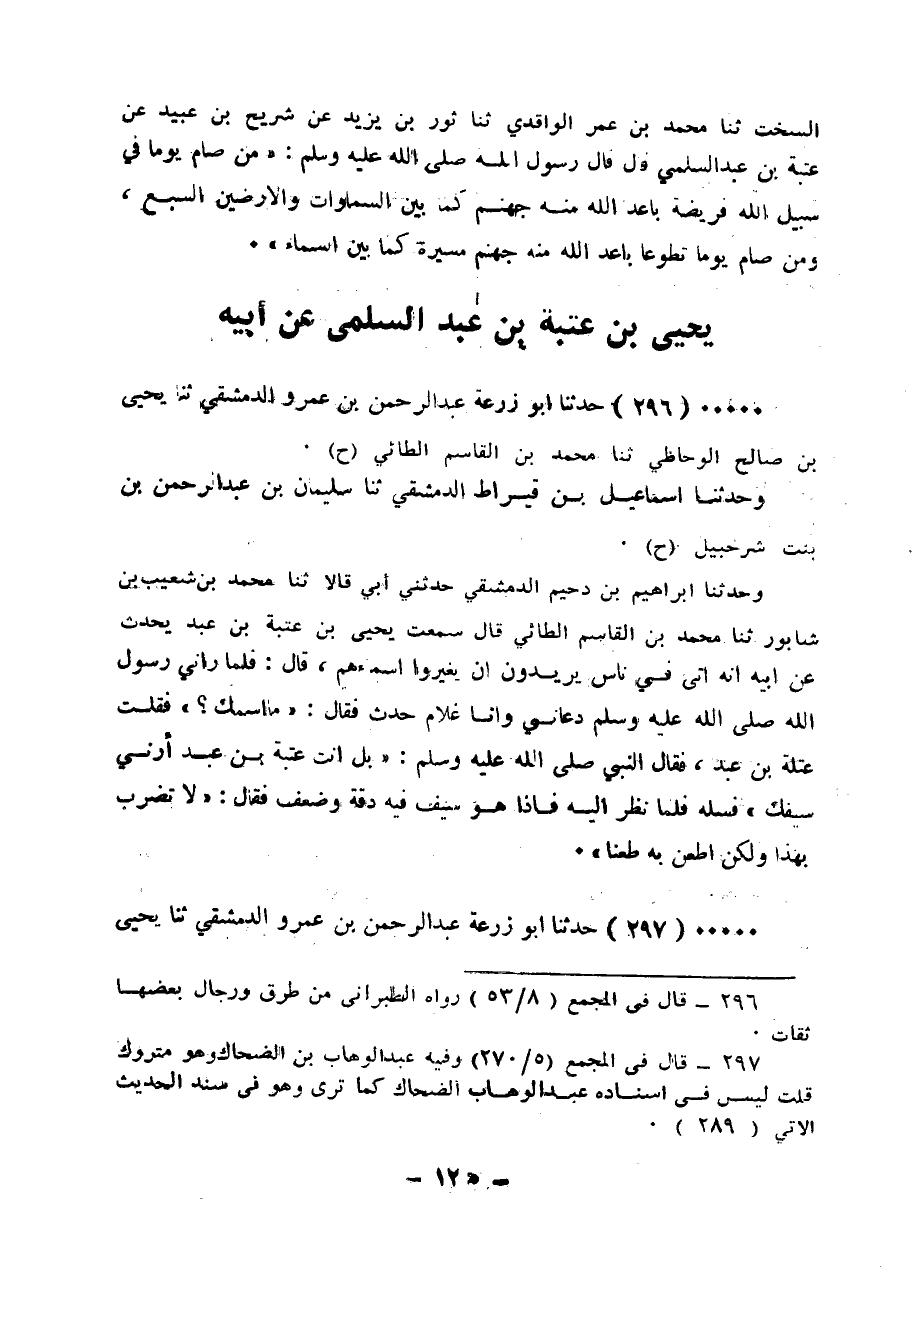 السخت ثنا محمد بن عمر الواقدي ثنا ثور بن يزيد عن شريح بن عبيد عن
عتبة بن عبدالسلمي قال قال رسول الله صلى الله عليه وسلم : « من صام يوما في
سبيل الله فريضة باعد الله منه جهنم كما بين السماوات والارضين السبع ،
ومن صام يوما تطوعا باعد الله منه جهنم مسيرة كما بين السماء » ٠
يحيى بن عتبة بن عبد السلمي عن أبيه
٠٠٠٠٠ ( ٢٩٦ ) حدثنا ابو زرعة عبدالرحمن بن عمرو الدمشقي ثنا يحيى
بن صالح الوحاظي ثنا محمد بن القاسم الطائي (ح) ٠
وحدثنا اسماعيل بن قيراط الدمشقي ثنا سليمان بن عبدالرحمن بن
بنت شرحبيل (ح) ٠
وحدثنا ابراهيم بن دحيم الدمشقي حدثني أبي قالا ثنا محمد بن شعيب بن
شابور ثنا محمد بن القاسم الطائي قال سمعت يحيى بن عتبة بن عبد يحدث
عن ابيه انه اتى في ناس يريدون ان يغيروا اسماءهم ، قال : فلما راني رسول
الله صلى الله عليه وسلم دعاني وانا غلام حدث فقال : « مااسمك ؟ » فقلت
عتلة بن عبد ، فقال النبي صلى الله عليه وسلم : « بل انت عتبة بن عبد أرني
سيفك » فسله فلما نظر اليه فاذا هو سيف فيه دقة وضعف فقال : « لا تضرب
بهذا ولكن اطعن به طعنا » ٠
٠٠٠٠٠ ( ٢٩٧ ) حدثنا ابو زرعة عبدالرحمن بن عمرو الدمشقي ثنا يحيى
٢٩٦ ــ قال فى المجمع ( ٥٣/٨ ) رواه الطبرانى من طرق ورجال بعضها
ثقات ٠
٢٩٧ ــ قال فى المجمع (٢٧٠/٥) وفيه عبدالوهاب بن الضحاك وهو متروك
قلت ليس فى اسناده عبدالوهاب الضحاك كما ترى وهو فى سند الحديث
الاتي ( ٢٨٩ ) ٠
ــ ١٢٥ ــ